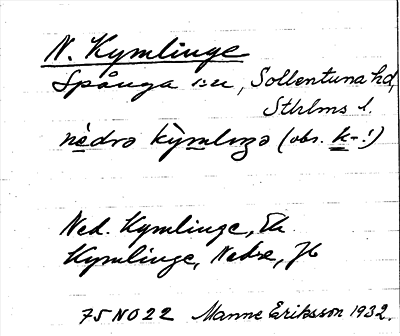 N. Kymlinge
Spånga sn, Sollentuna hd,
Sthlms l.
nèdrə kỳmlɪŋə (obs. k-!)
Ned. Kymlinge, Ek
Kymlinge, Nedre, Jb
75 NO 22 Manne Eriksson 1932.